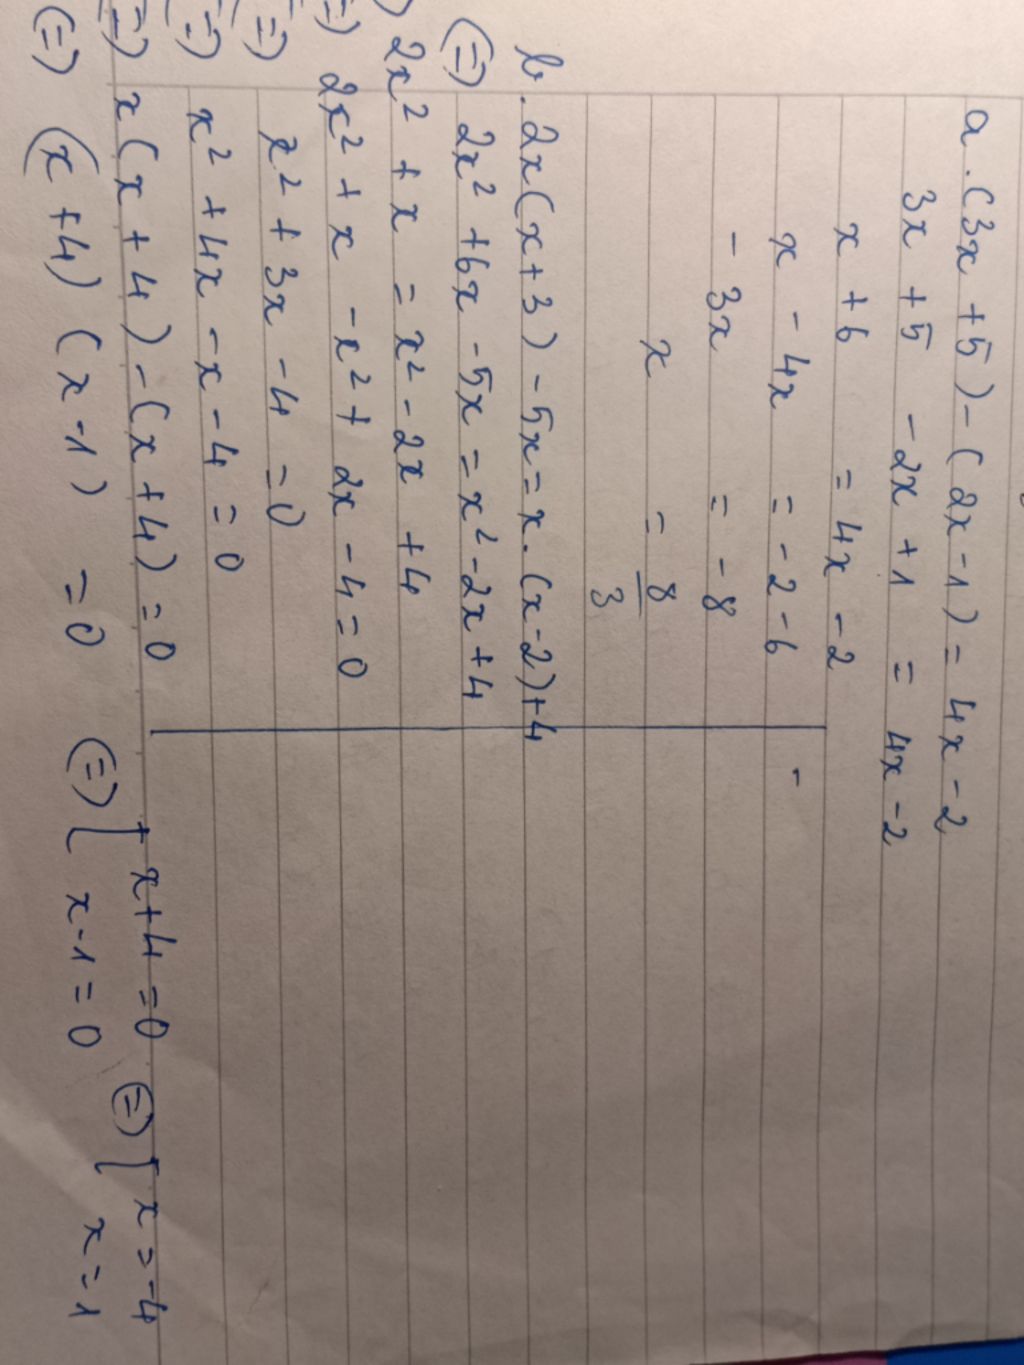 a. (3x + 5) - (2x - 1) = 4x - 2
3x + 5 - 2x + 1 = 4x - 2
x + 6 = 4x - 2
x - 4x = - 2 - 6
- 3x = - 8
x = 8/3
b. 2x(x+3) - 5x = x.(x-2)+4
(=) 2x² + 6x - 5x = x² - 2x + 4
2x² + x = x² - 2x + 4
(=) 2x² + x - x² + 2x - 4 = 0
(=) x² + 3x - 4 = 0
(=) x² + 4x - x - 4 = 0
(=) x(x + 4) - (x + 4) = 0
(=) (x + 4) (x - 1) = 0 (=) [ x + 4 = 0 (=) [ x = -4
x - 1 = 0 x = 1